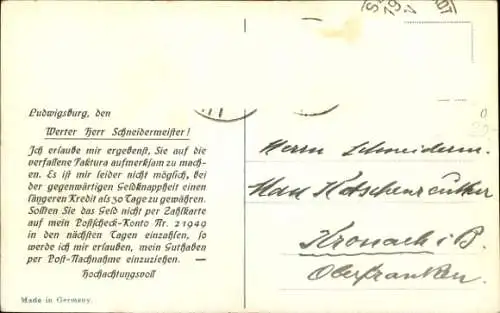 Ludwigsburg, den
Werter Herr Schneidermeister!
Ich erlaube mir ergebenst, Sie auf die
verfallene Faktura aufmerksam zu mach-
en. Es ist mir leider nicht möglich, bei
der gegenwärtigen Geldknappheit einen
längeren Kredit als 30 Tage zu gewähren.
Sollten Sie das Geld nicht per Zahlkarte
auf mein Postscheck-Konto Nr. 21949
in den nächsten Tagen einzahlen, so
werde ich mir erlauben, mein Guthaben
per Post-Nachnahme einzuziehen. —
Hochachtungsvoll
Made in Germany.
Herrn Schneiderm.
Kronach i. B.
Oberfranken.